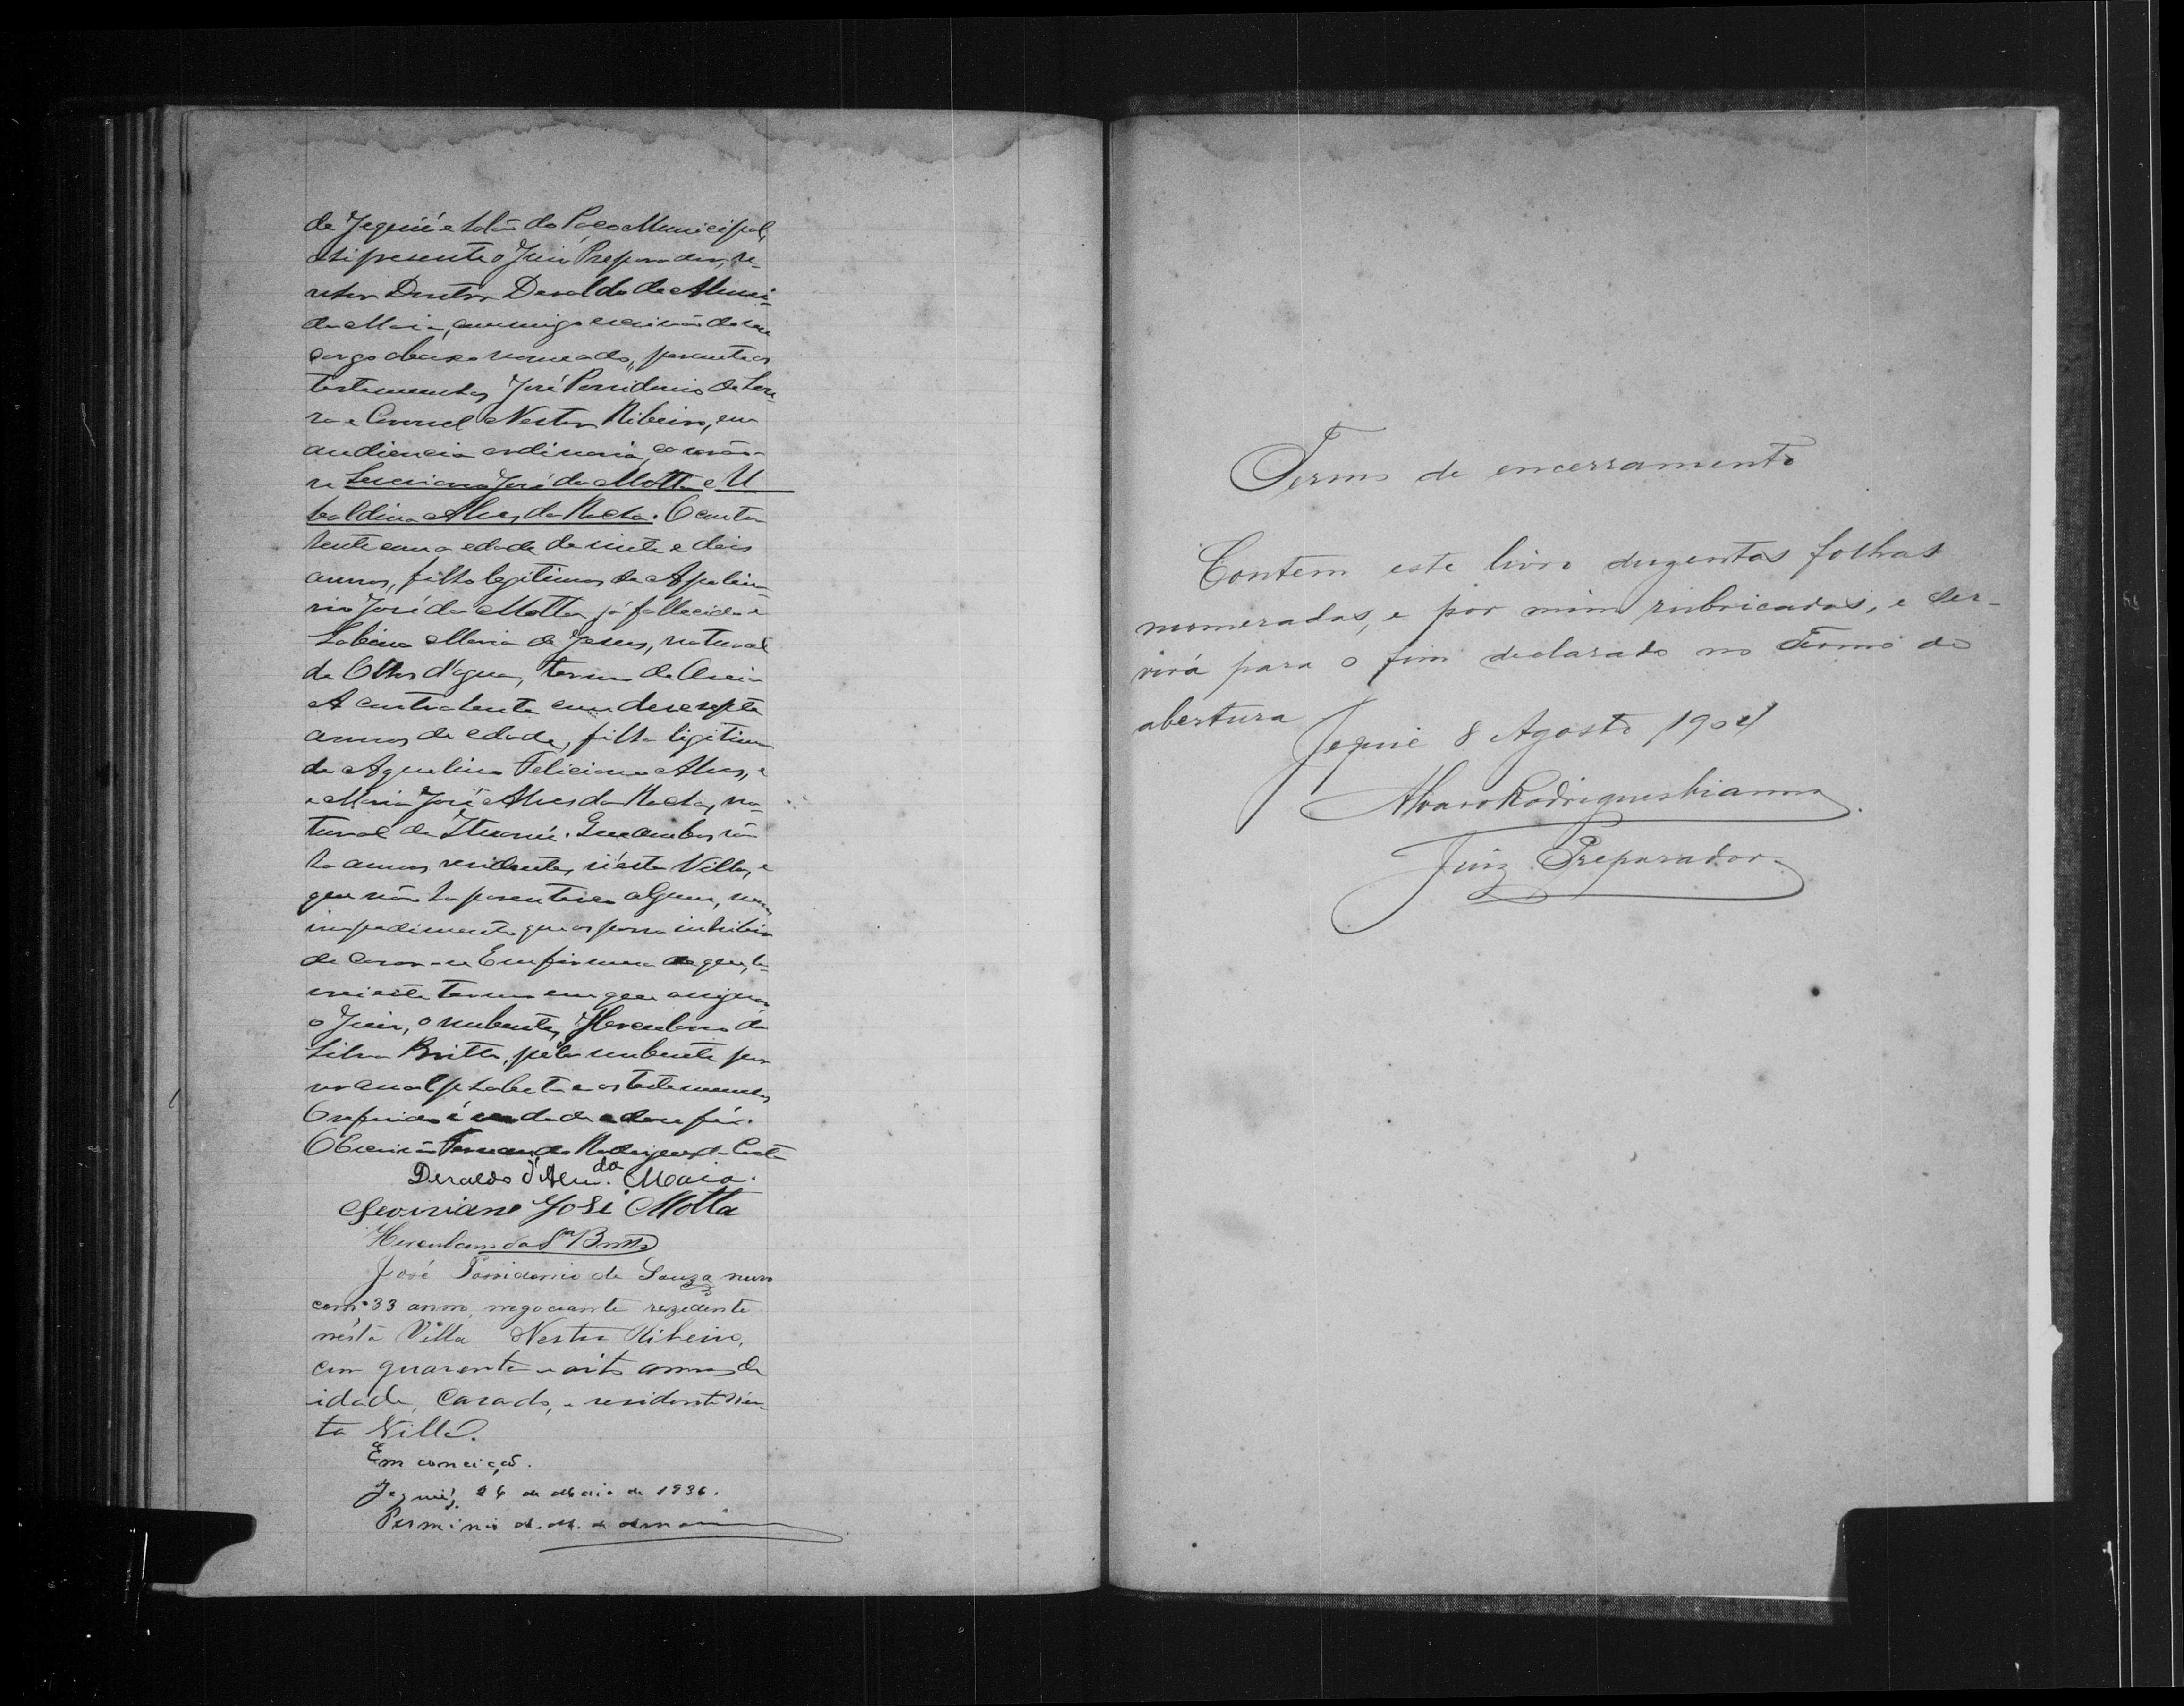 de Jequié e salão do Paço Municipal,
ahi presente o Juiz Preparador, se-
nhor Doutor Deraldo de Almei-
da Maia, commigo escrivão do seu
cargo abaixo nomeado, perante as
testemunhas José Possidonio de Sou-
za e Coronel Nestor Ribeiro, em
audiencia ordinaria, casarão-
se José da Motta e U
baldina Alves da Rocha. O contra-
hente com a edade de vinte e dois
annos, filho legitimo de Apolina-
rio José da Motta, já fallecido e
Sabina Maria de Jesus, natural
de Olhos d'agua, termo de Areia
A contrahente com desesepte
annos de edade, filha ligitima
de Aquelino Feliciano Alves, e
e Maria José Alves da Rocha, na-
tural de Que ambos são
ha annos residentes n'esta Villa, e
que não ha parentesco algum, nem
impedimento que os possa inhibir
de casar-se Em firmeza do que, la-
vrei este termo em que assignão
o Juiz, o nubente, Herculano da
Silva Britto, pela nubente por
ser analphabeta e as testemunhas
O referido é verdade e dou fé.
O Escrivão Fernando Rodrigues da Costa
Deraldo d'Alm.da Maia.
José Motta
Herculano da S.a Britto
José Possidonio de Souza
com 33 anno, negociante rezidente
nésta Villa Nestor Ribeiro,
com quarenta e oito annos de
idade, Casado, e residente nes-
ta Villa.
Em correição.
Jequié, 26 de Maio de 1936.
Perminio
Termo de encerramento
Contem este livro duzentas folhas
numeradas, e por mim rubricadas, e ser-
virá para o fim declarado no Termo de
abertura
Jequié 8 Agosto 1904
Alvaro Rodrigues Vianna
Juiz Preparador.